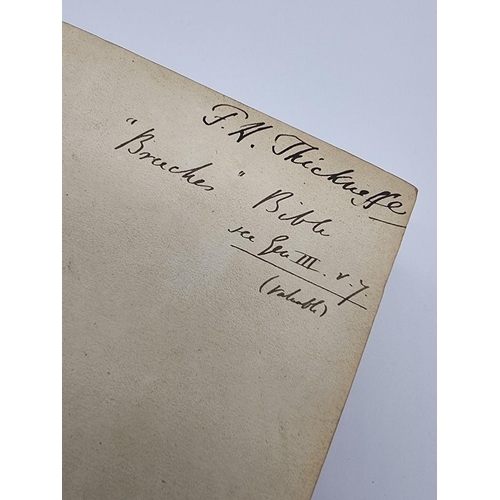 F. H. Thicknesse
"Breeches" Bible
see Gen III. v. 7.
(valuable)